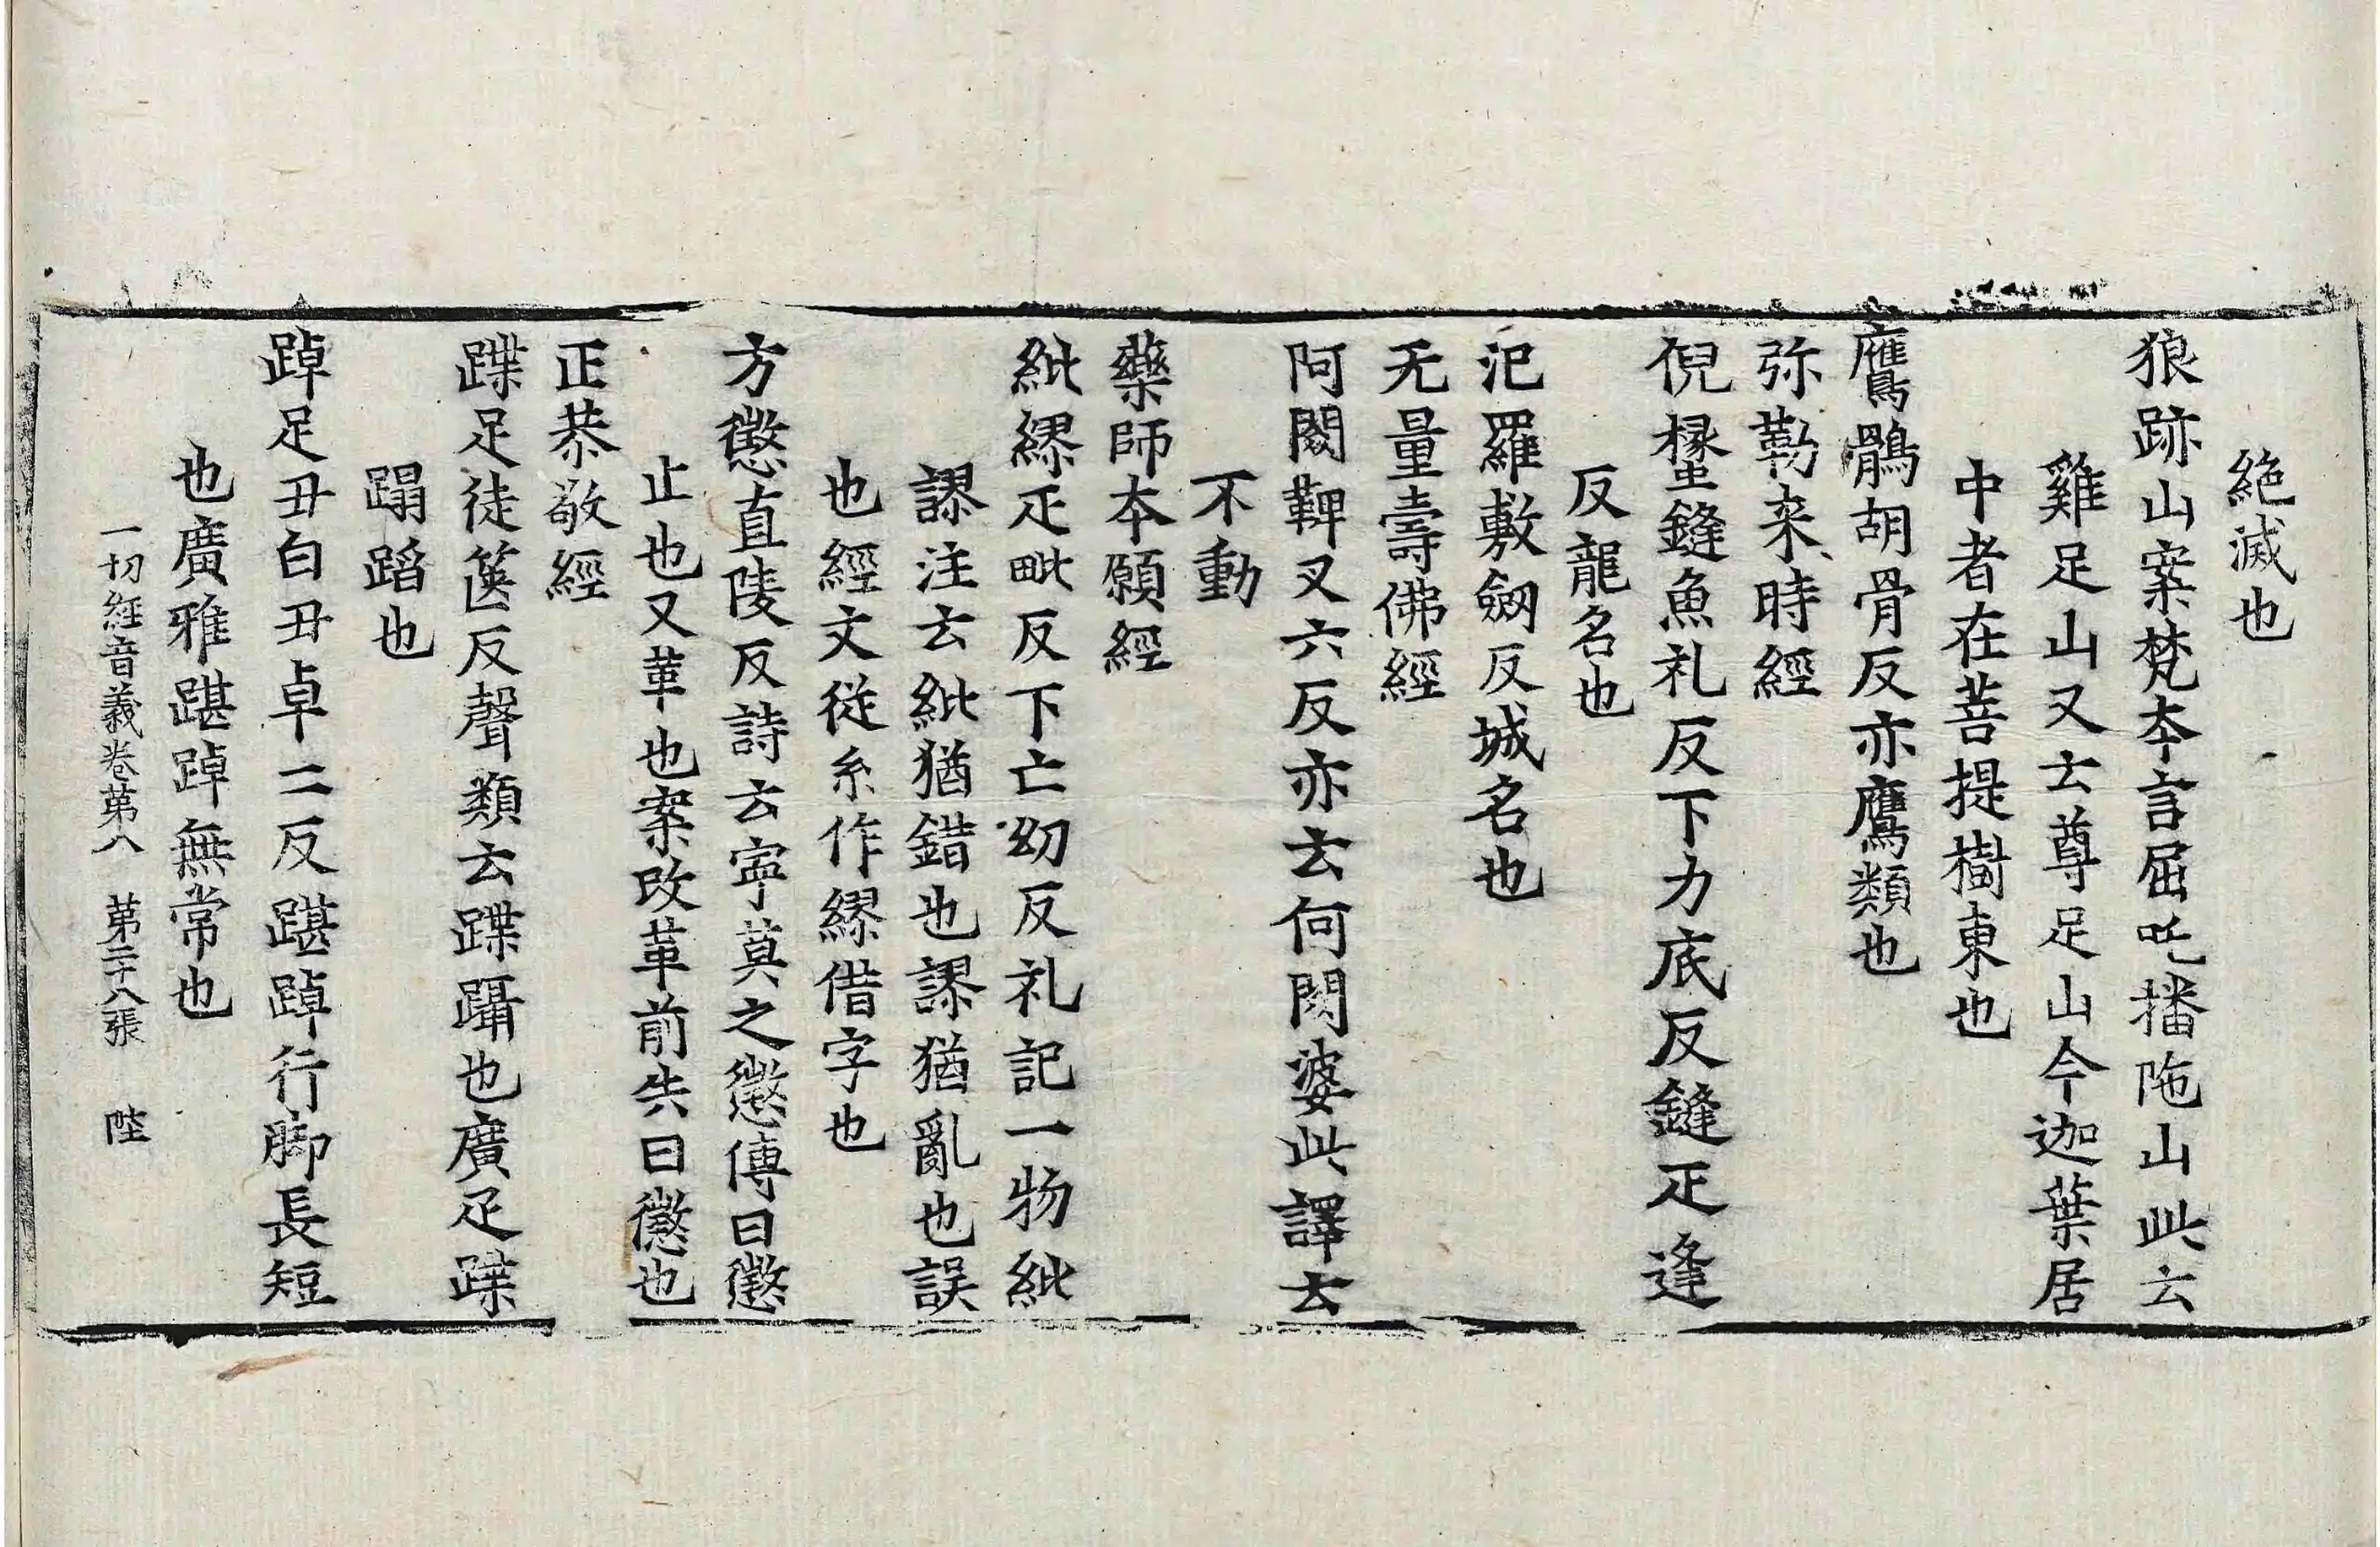 絶滅也
狼跡山案梵夲言屈吒播陁山此云
雞足山又云尊足山今迦葉居
中者在菩提樹東也
鷹鶻胡骨反亦鷹類也
弥勒来時經
倪㯿鏠魚礼反下力底反鏠疋逢
反龍名也
汜羅敷劒反城名也
无量壽佛經
阿閦鞞叉六反亦云何閦婆此譯云
不動
藥師夲願經
紕繆疋毗反下亡㓜反礼記一物紕
謬注云紕猶錯也謬猶亂也誤
也經文従糸作繆借字也
方懲直陵反詩云寜莫之懲傳曰懲
止也又革也案改革前失曰懲也
正恭敬經
蹀足徒篋反聲類云蹀躡也廣疋蹀
蹋蹈也
踔足丑白丑卓二反踸踔行脚長短
也廣雅踸踔無常也
一切經音義卷苐八 苐二十八張 陛